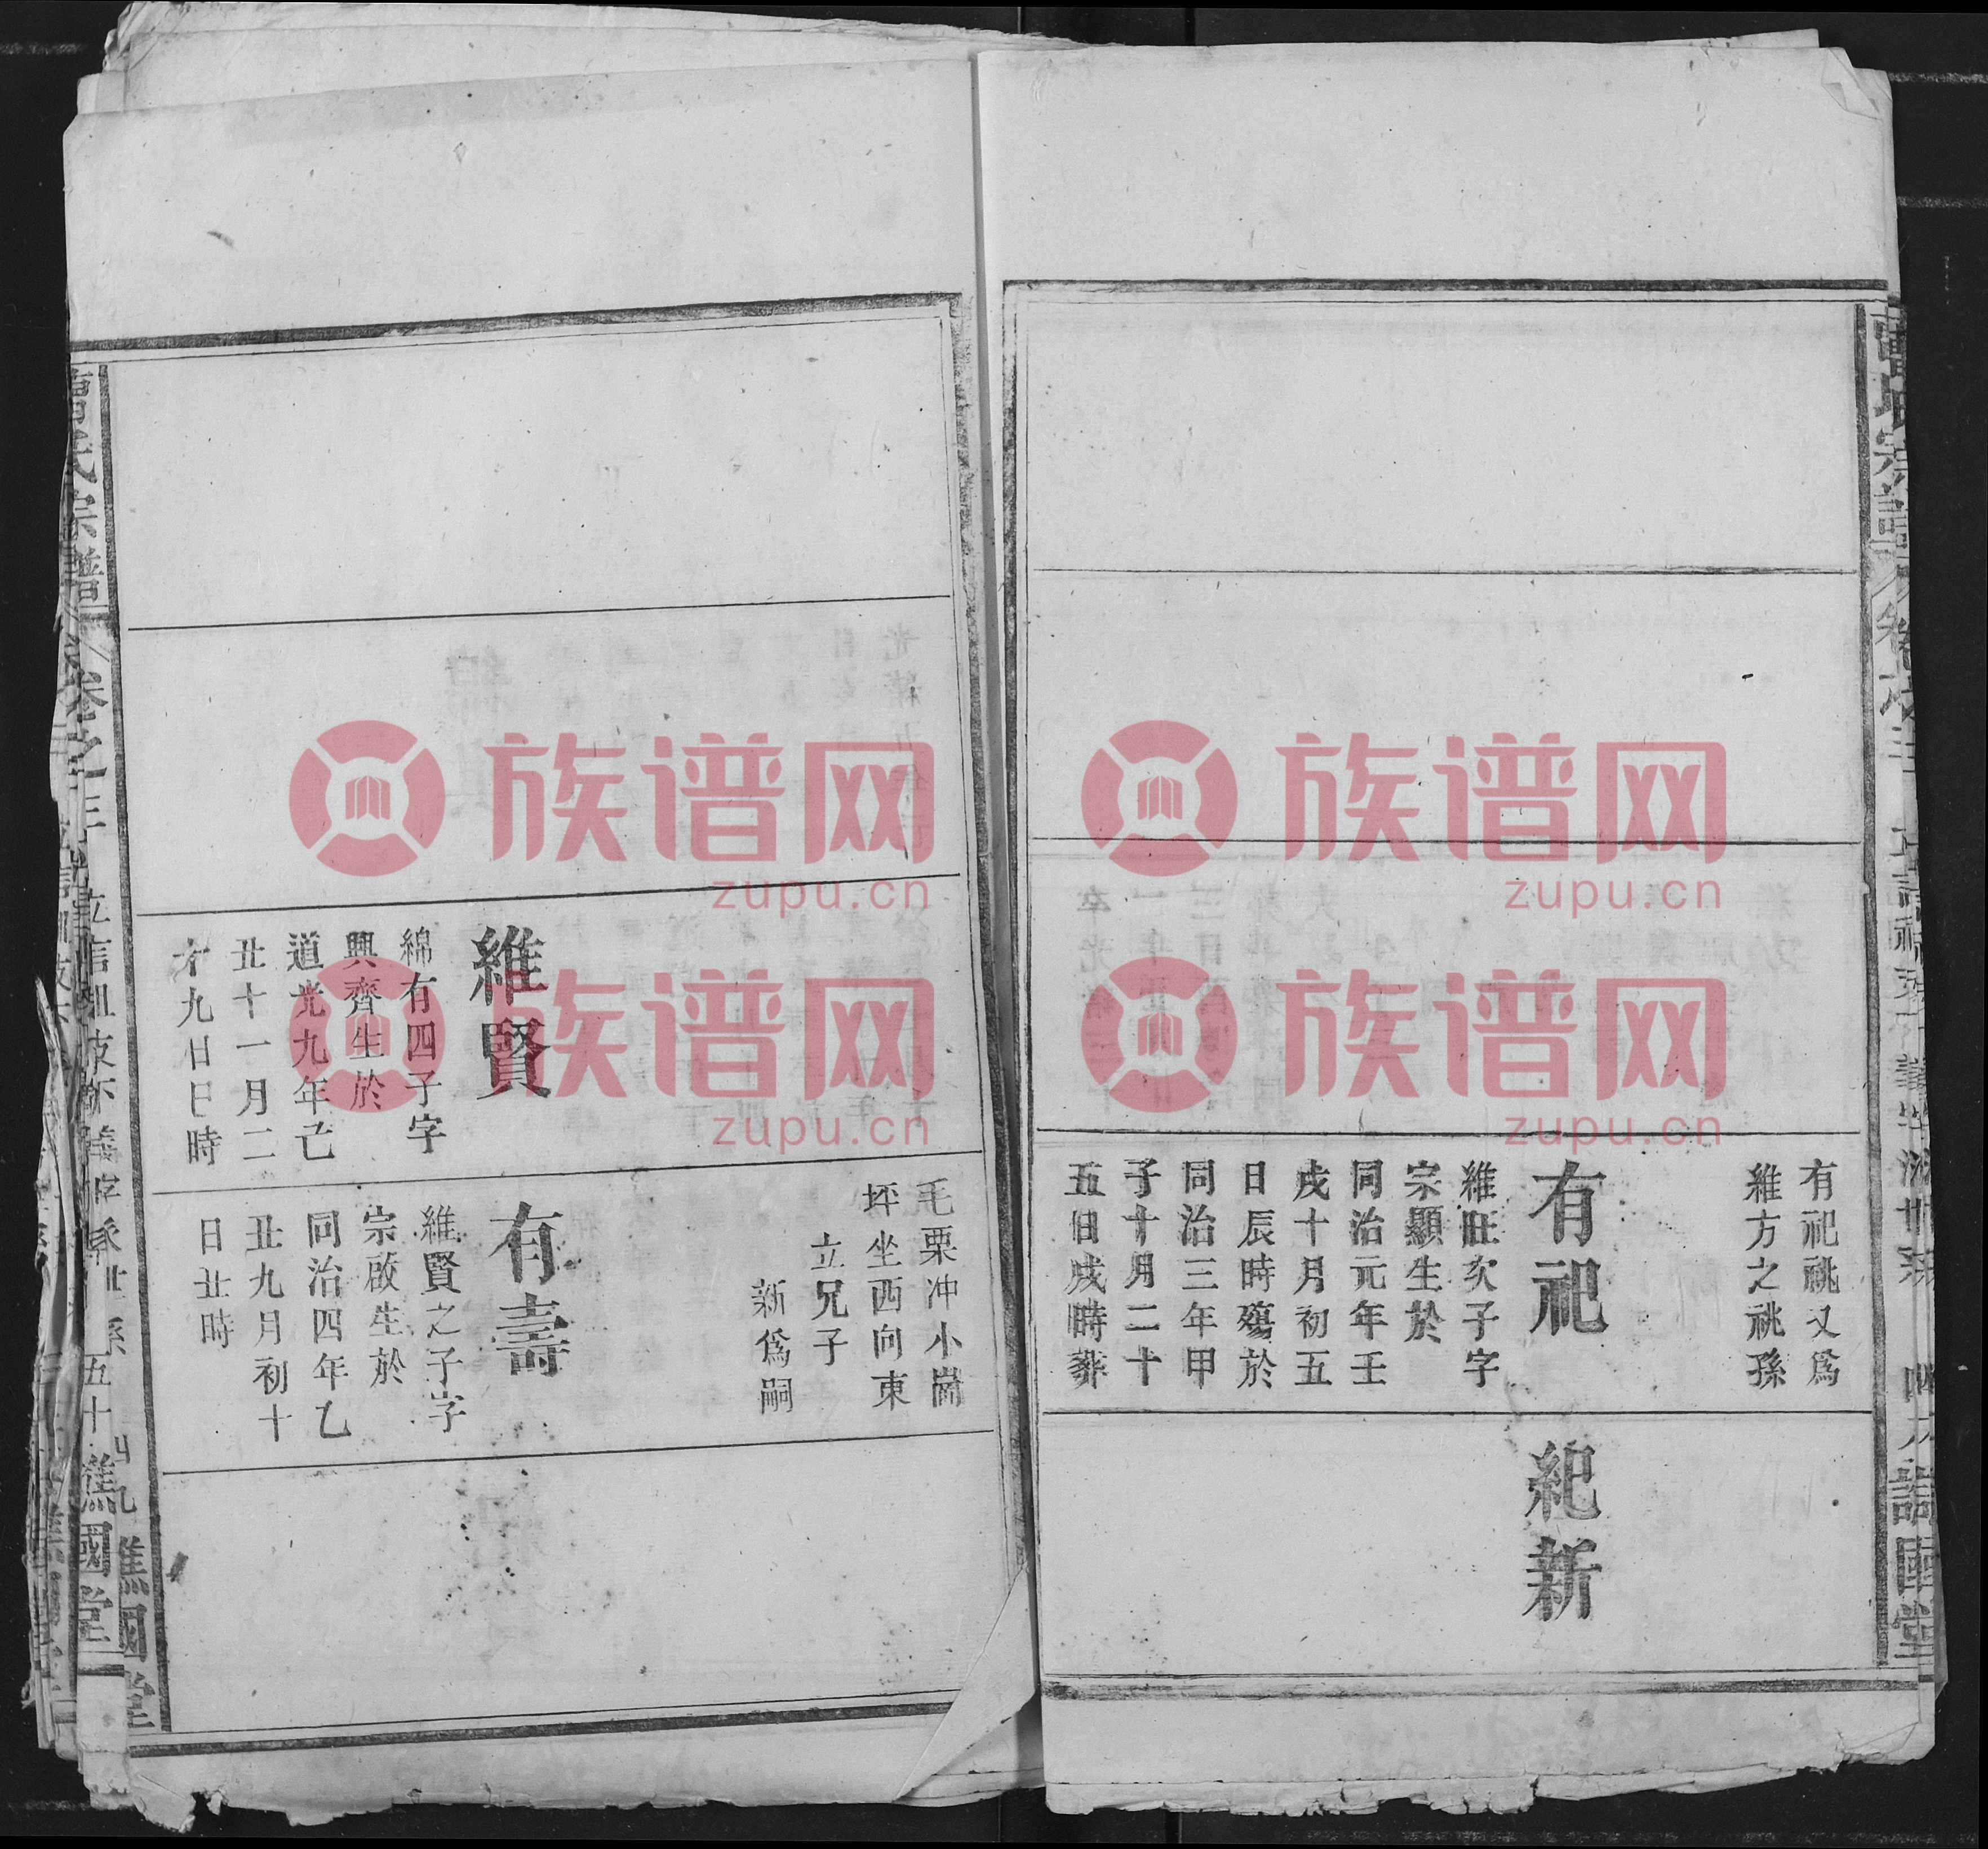 有祀祧又爲
維方之祧孫
有祀
維旺次子字
宗顯生於
同治元年壬
戌十月初五
日辰時殤於
同治三年甲
子十月二十
五日戌時葬
紀新
毛栗冲小崗
坪坐西向東
立兄子
新爲嗣
維賢
綿有四子字
興齊生於
道光九年己
丑十一月二
十九日日時
有壽
維賢之子字
宗啟生於
同治四年乙
丑九月初十
日丑時
曹氏宗譜
卷之三
五十
譙國堂
族谱网
zupu.cn
族谱网
zupu.cn
族谱网
zupu.cn
族谱网
zupu.cn